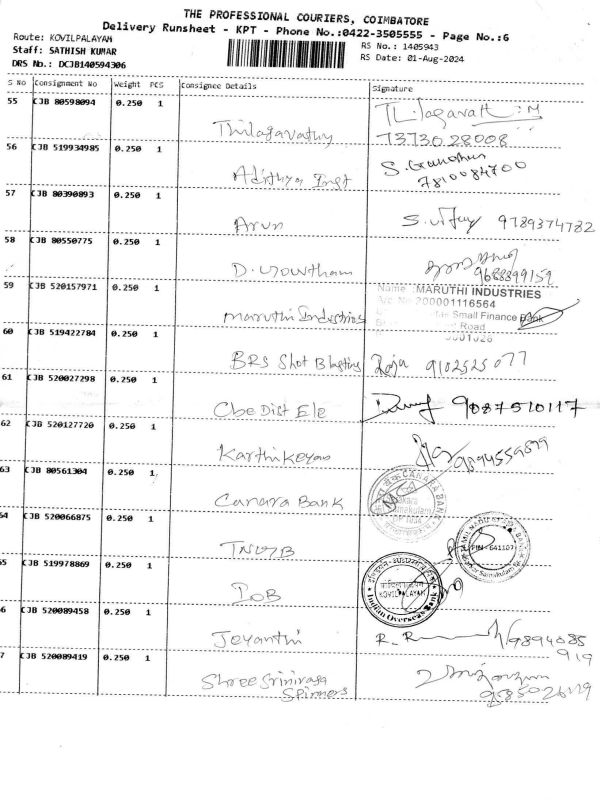 THE PROFESSIONAL COURIERS, COIMBATORE
Delivery Runsheet - KPT - Phone No.:0422-3505555 - Page No.:6
Route: KOVILPALAYAM
Staff: SATHISH KUMAR
DRS No.: DCJB140594306
RS No.: 1405943
RS Date: 01-Aug-2024
S No Consignment No Weight PCS Consignee Details Signature
55 CJB 80598094 0.250 1 Thilagavathy
7373028008
56 CJB 519934985 0.250 1 Adithya Inst
7810084700
57 CJB 80390893 0.250 1 Arun S. Vijay 9789374782
58 CJB 80550775 0.250 1 D. Gowtham
9688899159
59 CJB 520157971 0.250 1 Maruthi Industries
Name: MARUTHI INDUSTRIES
A/c No 200001116564
Small Finance Bank
Road
60 CJB 519422784 0.250 1 BRS Shot Blasting Roja 9102525077
61 CJB 520027298 0.250 1 Cbe Dist Ele 9087510117
62 CJB 520127720 0.250 1 Karthikeyan 9894559899
63 CJB 80561304 0.250 1 Canara Bank
CANARA BANK
64 CJB 520066875 0.250 1 TNGB
TAMIL NADU GRAMA BANK
PIN - 641107
65 CJB 519978869 0.250 1 IOB
KOVILPALAYAM
Indian Overseas Bank
6 CJB 520089458 0.250 1 Jeyanthi 9894085
919
7 CJB 520089419 0.250 1 Shree Srinivasa
Spinners